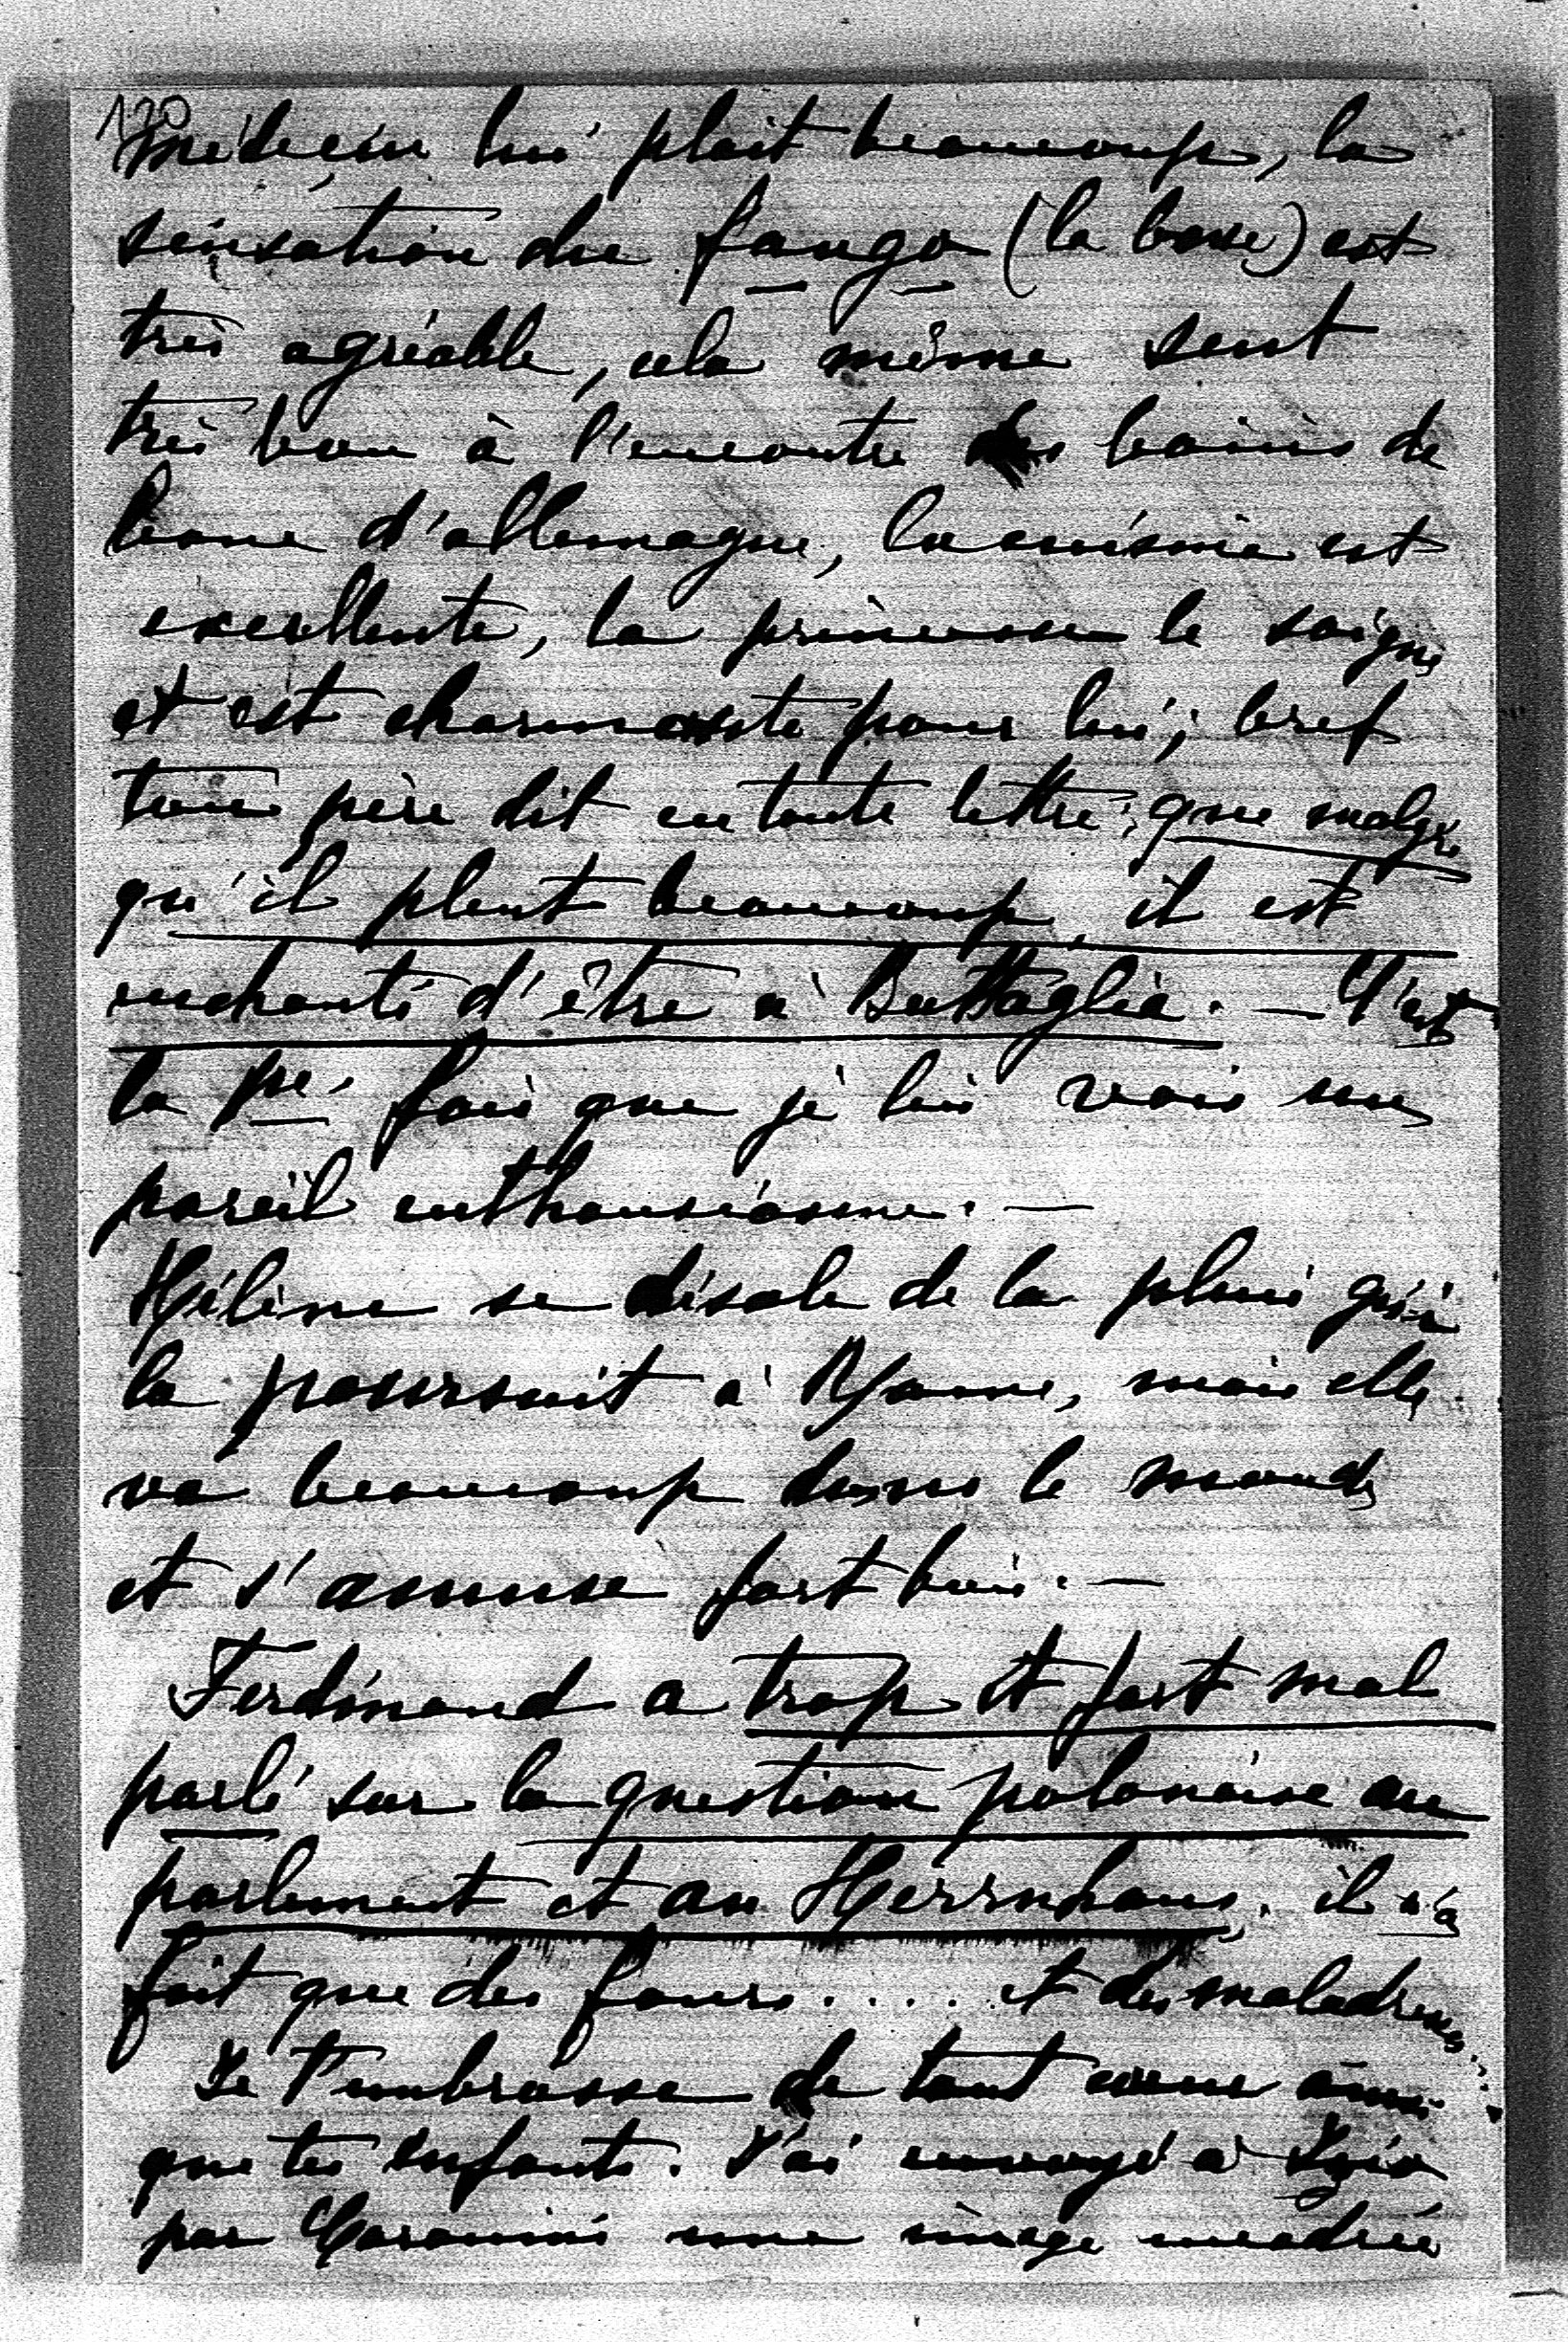 120
médecin lui plait beaucoup, la
sensation du fango (la boue) est
très agréable, cela même sent
très bon à l'encontre des bains de
boue d'allemagne, la cuisine est
excellente, la princesse le soigne
et est charmante pour lui; bref
ton père dit en toute lettre: que malgré
qu'il pleut beaucoup, il est
enchanté d'être à Battaglia. — C'est
la 1re fois que je lui vois un
pareil enthousiasme. —
Hélène se désole de la pluie qui
la poursuit à Rome, mais elle
va beaucoup dans le monde
et s'amuse fort bien. —
Ferdinand a trop et fort mal
parlé sur la question polonaise au
parlement et au Herrnhaus, il n'a
fait que des fours.... et des maladresses...
Je t'embrasse de tout coeur ainsi
que tes enfants. J'ai envoyé à
par une image encadrée